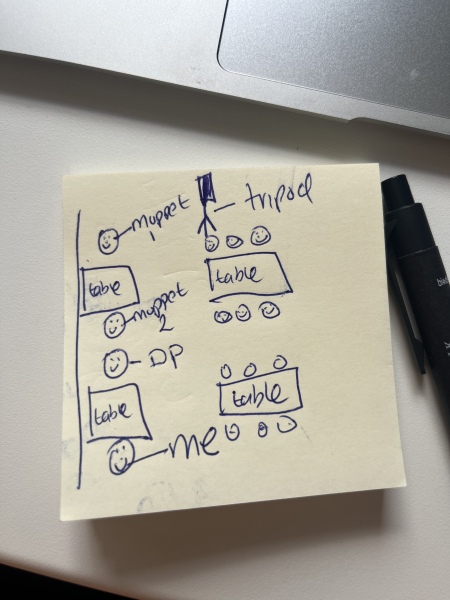 muppet
1
tripod
table
table
muppet
2
DP
table
table
me